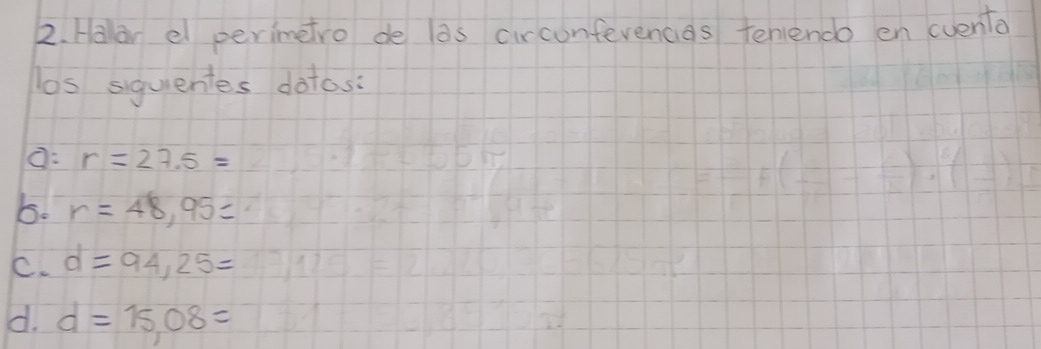 2. Halar el perimetro de las circunferencias teniendo en cuenta
los siguientes datos:
a: r = 27.5 =
b. r = 48,95 =
c. d = 94,25 =
d. d = 15,08 =